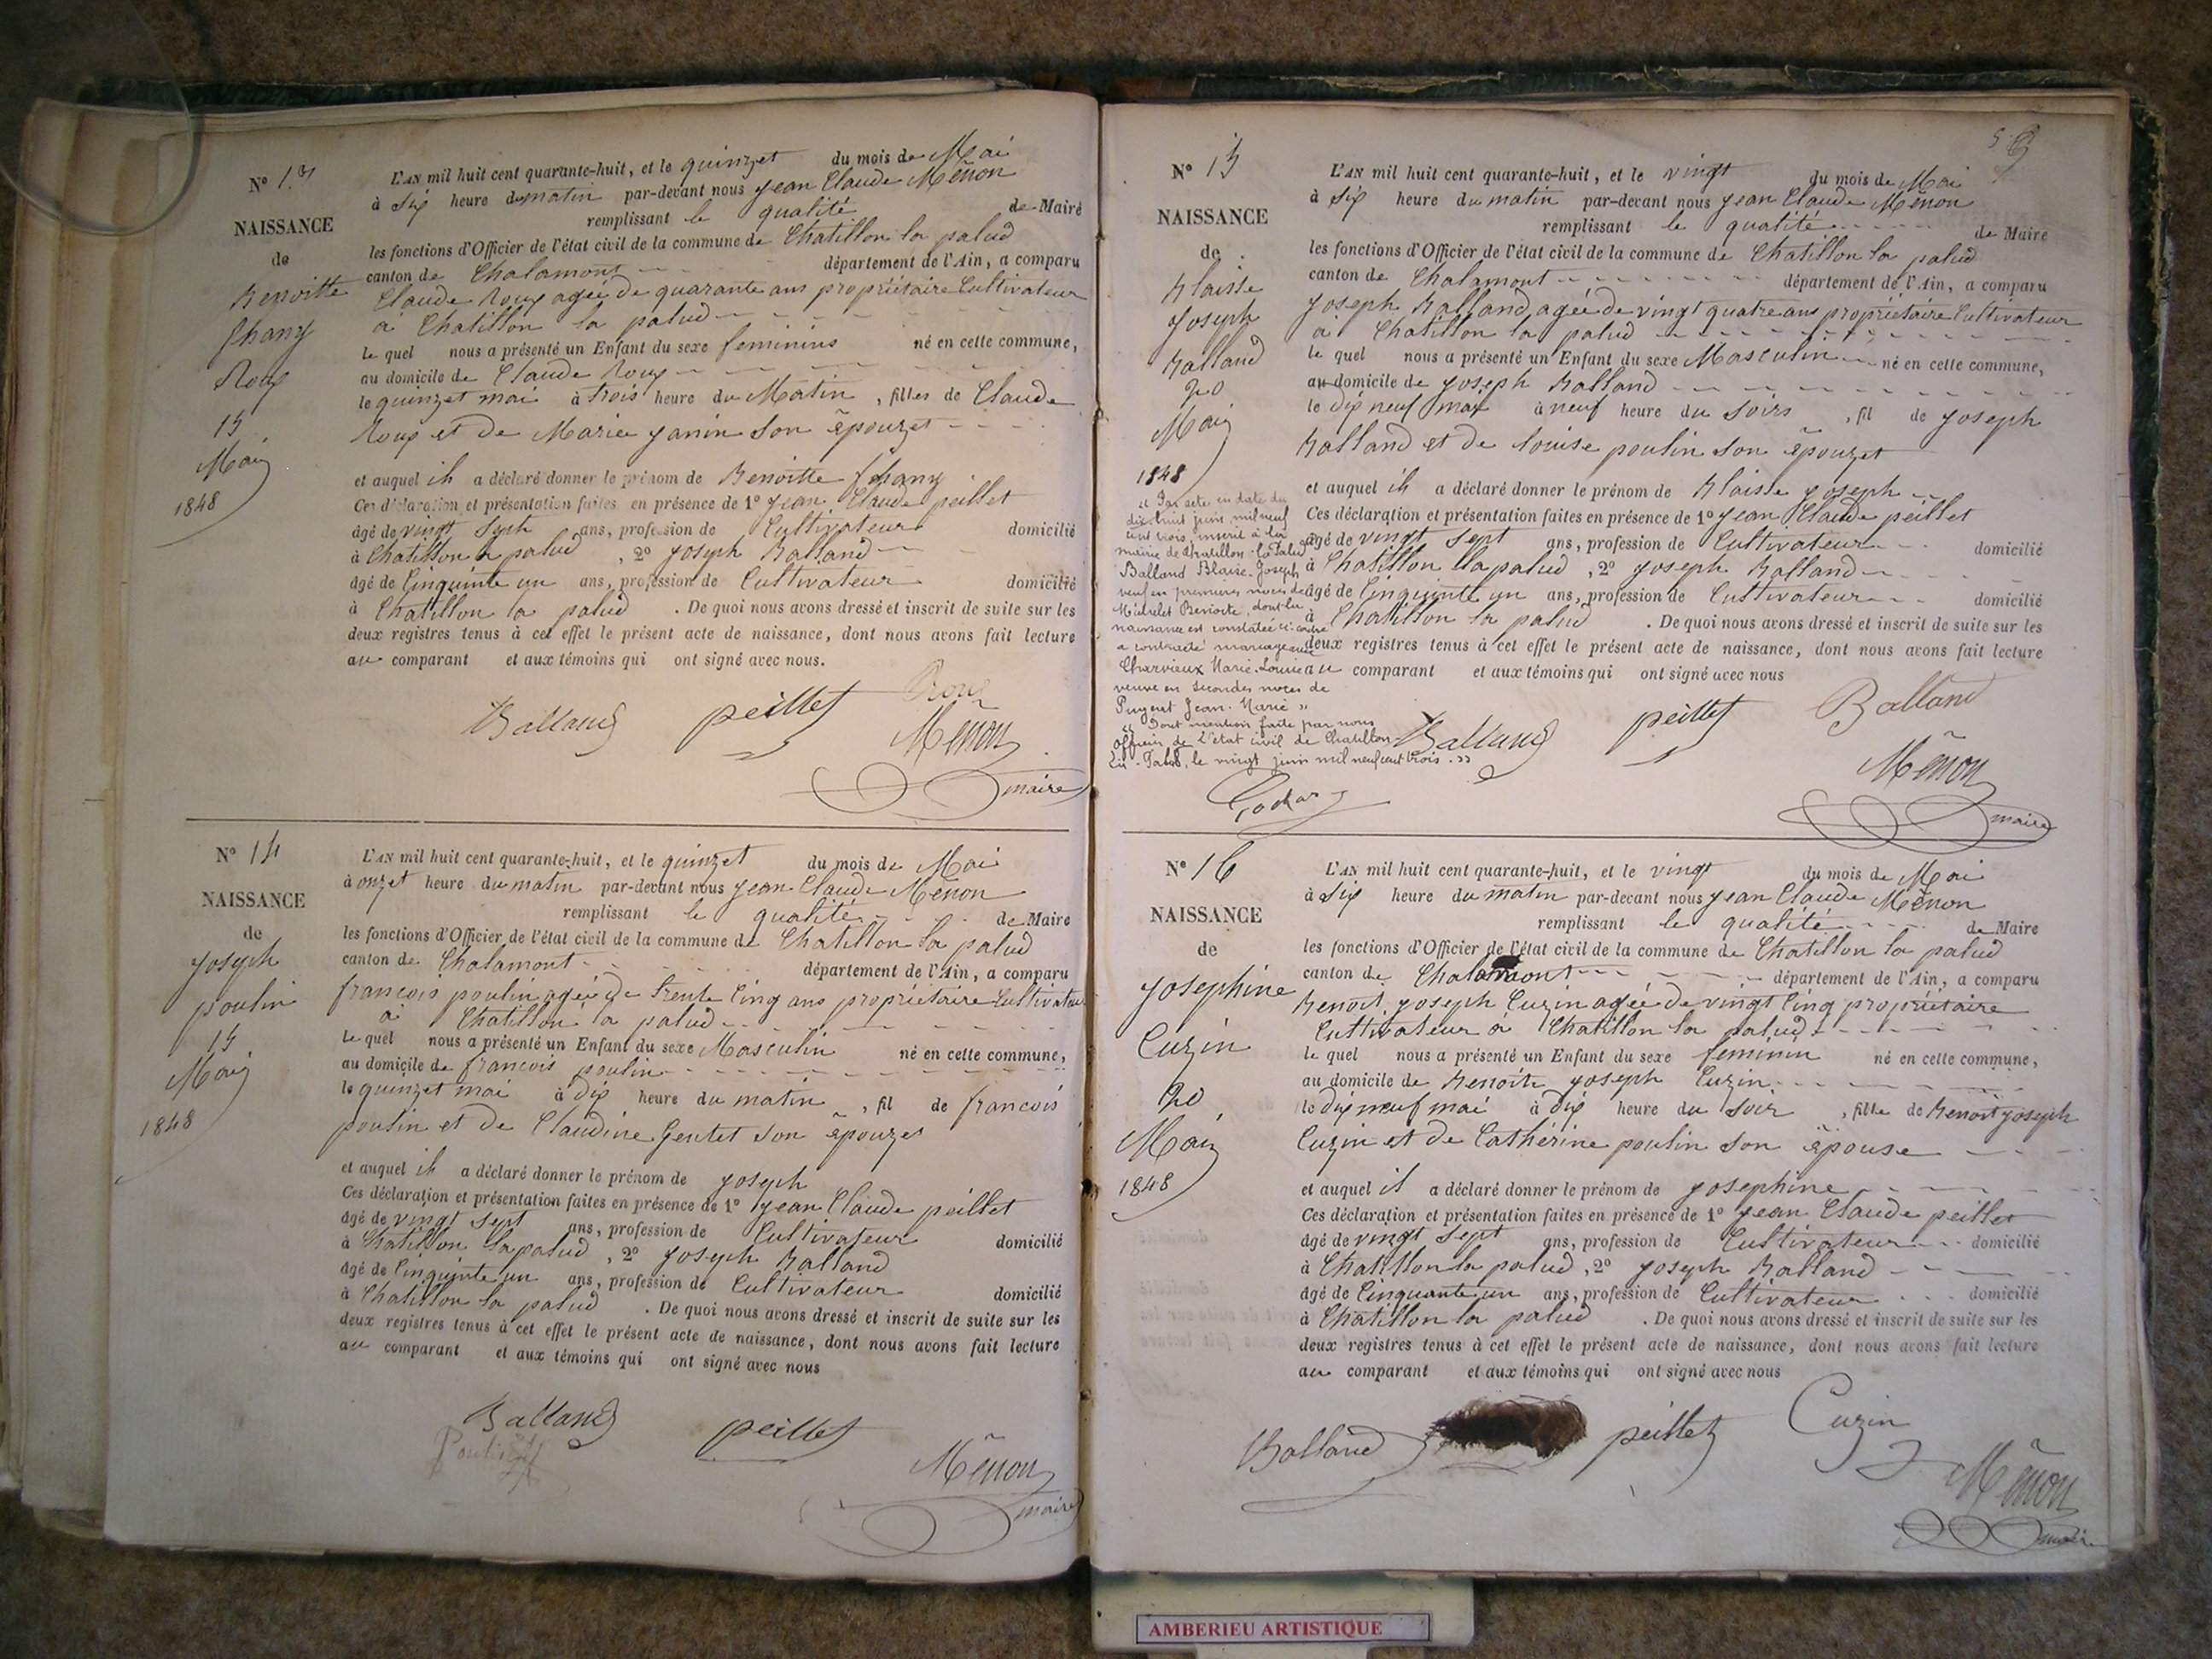 N° 13
NAISSANCE
de
Benoitte
fhany
Roux
15
Mai
1848
L'AN mil huit cent quarante-huit, et le quinzet du mois de Mai
à six heure du matin par-devant nous jean Claude Mênon
remplissant le qualité de Maire
les fonctions d'Officier de l'état civil de la commune de Chatillon la palud
canton de Chalamont département de l'Ain, a comparu
Claude Roux agée de quarante ans propriétaire Cultivateur
à Chatillon la palud
le quel nous a présenté un Enfant du sexe feminins né en cette commune,
au domicile de Claude Roux
le quinzet mai à trois heure du Matin, filles de Claude
Roux et de Marie janin son épouzet
et auquel il a déclaré donner le prénom de Benoitte fhany
Ces déclaration et présentation faites en présence de 1° jean Claude peillet
âgé de vingt sept ans, profession de Cultivateur domicilié
à Chatillon la palud, 2° joseph Balland
âgé de Cinquinte un ans, profession de Cultivateur domicilié
à Chatillon la palud. De quoi nous avons dressé et inscrit de suite sur les
deux registres tenus à cet effet le présent acte de naissance, dont nous avons fait lecture
au comparant et aux témoins qui ont signé avec nous.
Balland peillet Roux
Mênon
maire
N° 14
NAISSANCE
de
joseph
poulin
15
Mai
1848
L'AN mil huit cent quarante-huit, et le quinzet du mois de Mai
à onzet heure du matin par-devant nous jean Claude Mênon
remplissant le qualité de Maire
les fonctions d'Officier de l'état civil de la commune de Chatillon la palud
canton de Chalamont département de l'Ain, a comparu
francois poulin agée de trente Cinq ans propriétaire Cultivateur
à Chatillon la palud
le quel nous a présenté un Enfant du sexe Masculin né en cette commune,
au domicile de francois poulin
le quinzet mai à dix heure du matin, fil de francois
poulin et de Claudine Gentet son épouzet
et auquel il a déclaré donner le prénom de joseph
Ces déclaration et présentation faites en présence de 1° jean Claude peillet
âgé de vingt sept ans, profession de Cultivateur domicilié
à Chatillon la palud, 2° joseph Balland
âgé de Cinquinte un ans, profession de Cultivateur domicilié
à Chatillon la palud. De quoi nous avons dressé et inscrit de suite sur les
deux registres tenus à cet effet le présent acte de naissance, dont nous avons fait lecture
au comparant et aux témoins qui ont signé avec nous
Balland peillet
Poulin
Mênon
maire
N° 15
NAISSANCE
de
Blaisse
joseph
Balland
20
Mai
1848
« Par acte en date du
dix-huit juin mil neuf
cent trois, inscrit à la
mairie de Chatillon-la-Palud,
Balland Blaise-Joseph
veuf en premières noces de
Midulet Benoite, dont la
naissance est constatée ci-contre
a contracté mariage avec
Charvieux Marie-Louise
veuve en secondes noces de
Pugent Jean-Marie »
« Dont mention faite par nous
officier de l'état civil de Chatillon-
La-Palud, le vingt juin mil neuf cent trois. »
L'AN mil huit cent quarante-huit, et le vingt du mois de Mai
à six heure du matin par-devant nous jean Claude Mênon
remplissant le qualité de Maire
les fonctions d'Officier de l'état civil de la commune de Chatillon la palud
canton de Chalamont département de l'Ain, a comparu
joseph Balland agée de vingt quatre ans propriétaire Cultivateur
à Chatillon la palud
le quel nous a présenté un Enfant du sexe Masculin né en cette commune,
au domicile de joseph Balland
le dix neuf mai à neuf heure du soirs, fil de joseph
Balland et de Louise poulin son épouzet
et auquel il a déclaré donner le prénom de Blaisse joseph
Ces déclaration et présentation faites en présence de 1° jean Claude peillet
âgé de vingt sept ans, profession de Cultivateur domicilié
à Chatillon la palud, 2° joseph Balland
âgé de Cinquinte un ans, profession de Cultivateur domicilié
à Chatillon la palud. De quoi nous avons dressé et inscrit de suite sur les
deux registres tenus à cet effet le présent acte de naissance, dont nous avons fait lecture
au comparant et aux témoins qui ont signé avec nous
Balland peillet Balland
Mênon
maire
N° 16
NAISSANCE
de
josephine
Cuzin
20
Mai
1848
L'AN mil huit cent quarante-huit, et le vingt du mois de Mai
à six heure du matin par-devant nous jean Claude Mênon
remplissant le qualité de Maire
les fonctions d'Officier de l'état civil de la commune de Chatillon la palud
canton de Chalamont département de l'Ain, a comparu
Benoit joseph Cuzin agée de vingt Cinq propriétaire
Cultivateur à Chatillon la palud
le quel nous a présenté un Enfant du sexe feminin né en cette commune,
au domicile de Benoit joseph Cuzin
le dix neuf mai à dix heure du soir, fille de Benoit joseph
Cuzin et de Cathérine poulin son épouse
et auquel il a déclaré donner le prénom de josephine
Ces déclaration et présentation faites en présence de 1° jean Claude peillet
âgé de vingt sept ans, profession de Cultivateur domicilié
à Chatillon la palud, 2° joseph Balland
âgé de Cinquante un ans, profession de Cultivateur domicilié
à Chatillon la palud. De quoi nous avons dressé et inscrit de suite sur les
deux registres tenus à cet effet le présent acte de naissance, dont nous avons fait lecture
au comparant et aux témoins qui ont signé avec nous
Balland peillet Cuzin
Mênon
maire
AMBERIEU ARTISTIQUE